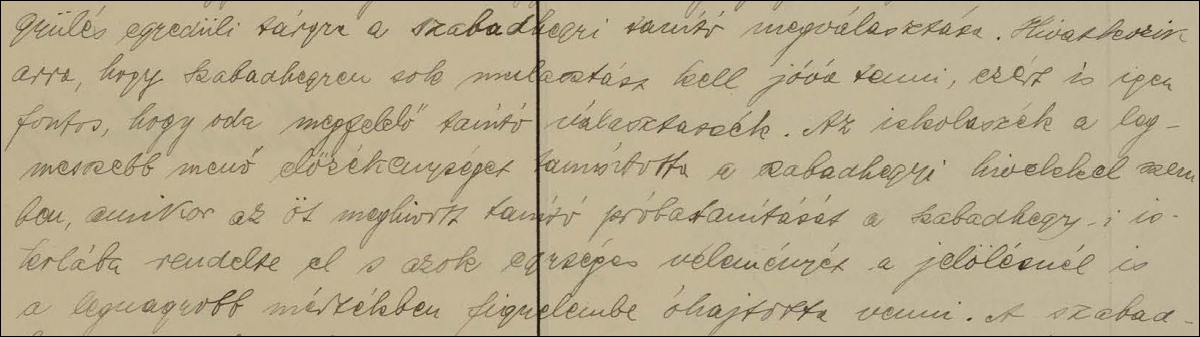 gyülés egyedüli tárgya a szabadhegyi tanító megválasztása. Hivatkozik
arra, hogy Szabadhegyen sok mulasztást kell jóvá tenni, ezért is igen
fontos, hogy oda megfelelő tanító választassék. Az iskolaszék a leg-
messzebb menő előzékenységet tanúsította a szabadhegyi hivekkel szem
ben, amikor az öt meghivott tanító próbatanítását a szabadhegy-i is-
kolába rendelte el s azok egységes véleményét a jelölésnél is
a legnagyobb mértékben figyelembe óhajtotta venni. A szabad-